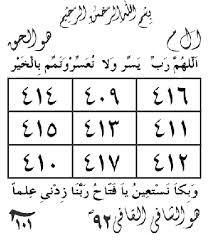 بِسْمِ اللهِ الرَّحْمٰنِ الرَّحِيْمِ
ا ل م هو الحق
اَللّٰهُمَّ رَبِّ يَسِّرْ وَلَا تُعَسِّرْ وَتَمِّمْ بِالْخَيْرِ
٤١٦ ٤٠٩ ٤١٤
٤١١ ٤١٣ ٤١٥
٤١٢ ٤١٧ ٤١٠
وَبِكَا نَسْتَعِيْنُ يَا فَتَّاحُ رَبَّنَا زِدْنِي عِلْماً
هو الشافي ٩٢ ١٠١